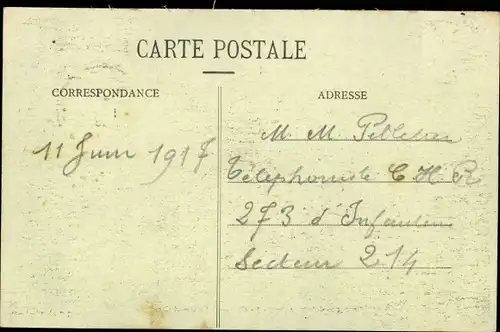 CARTE POSTALE
CORRESPONDANCE
ADRESSE
11 Juin 1917
M. M. Pelleton
Téléphoniste C H R
273 d'Infanterie
Secteur 214